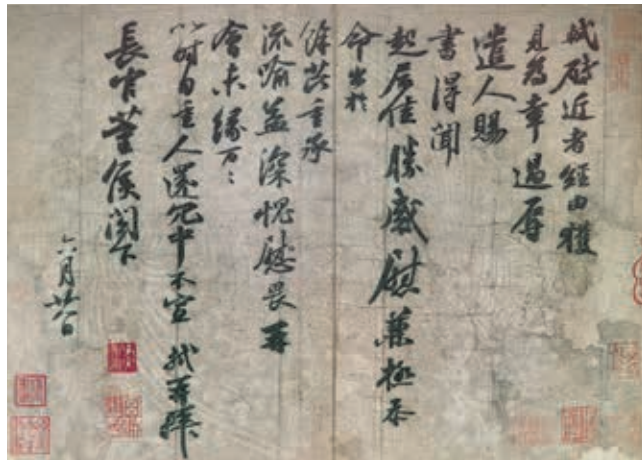 軾啓近者經由獲
見為幸過辱
遣人賜
書得聞
起居佳勝感慰兼極忝
命出於
餘芘重承
流喻益深愧慰畏再
會未緣万〻
以時自重人還冗中不宣軾再拜
長官董侯閣下
六月廿八日